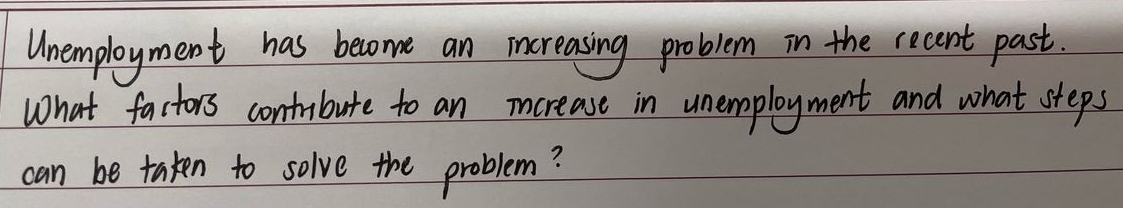 Unemployment has become an increasing problem in the recent past.
What factors contribute to an increase in unemployment and what steps
can be taken to solve the problem?